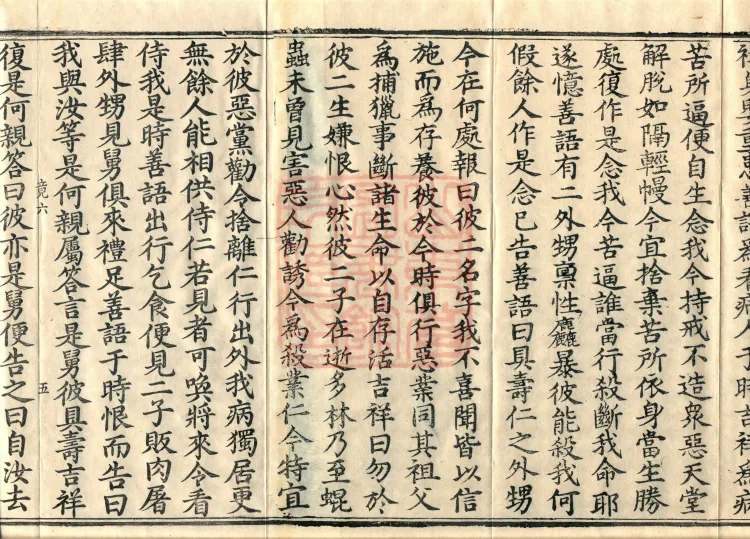 善語為看病人于時吉祥為病
苦所逼便自生念我今持戒不造眾惡天堂
解脫如隔輕幔今宜捨棄苦所依身當生勝
處復作是念我今苦逼誰當行殺斷我命耶
遂憶善語有二外甥稟性麤暴彼能殺我何
假餘人作是念已告善語曰具壽仁之外甥
今在何處報曰彼二名字我不喜聞皆以信
施而為存養彼於今時俱行惡業同其祖父
為捕獵事斷諸生命以自存活吉祥曰勿於
彼二生嫌恨心然彼二子在逝多林乃至蜫
蟲未曾見害惡人勸誘令為殺業仁今特宜
於彼惡黨勸令捨離仁行出外我病獨居更
無餘人能相供侍仁若見者可喚將來令看
侍我是時善語出行乞食便見二子販肉屠
肆外甥見舅俱來禮足善語于時恨而告曰
竟六 五
我與汝等是何親屬答言是舅彼具壽吉祥
復是何親答曰彼亦是舅便告之曰自汝去